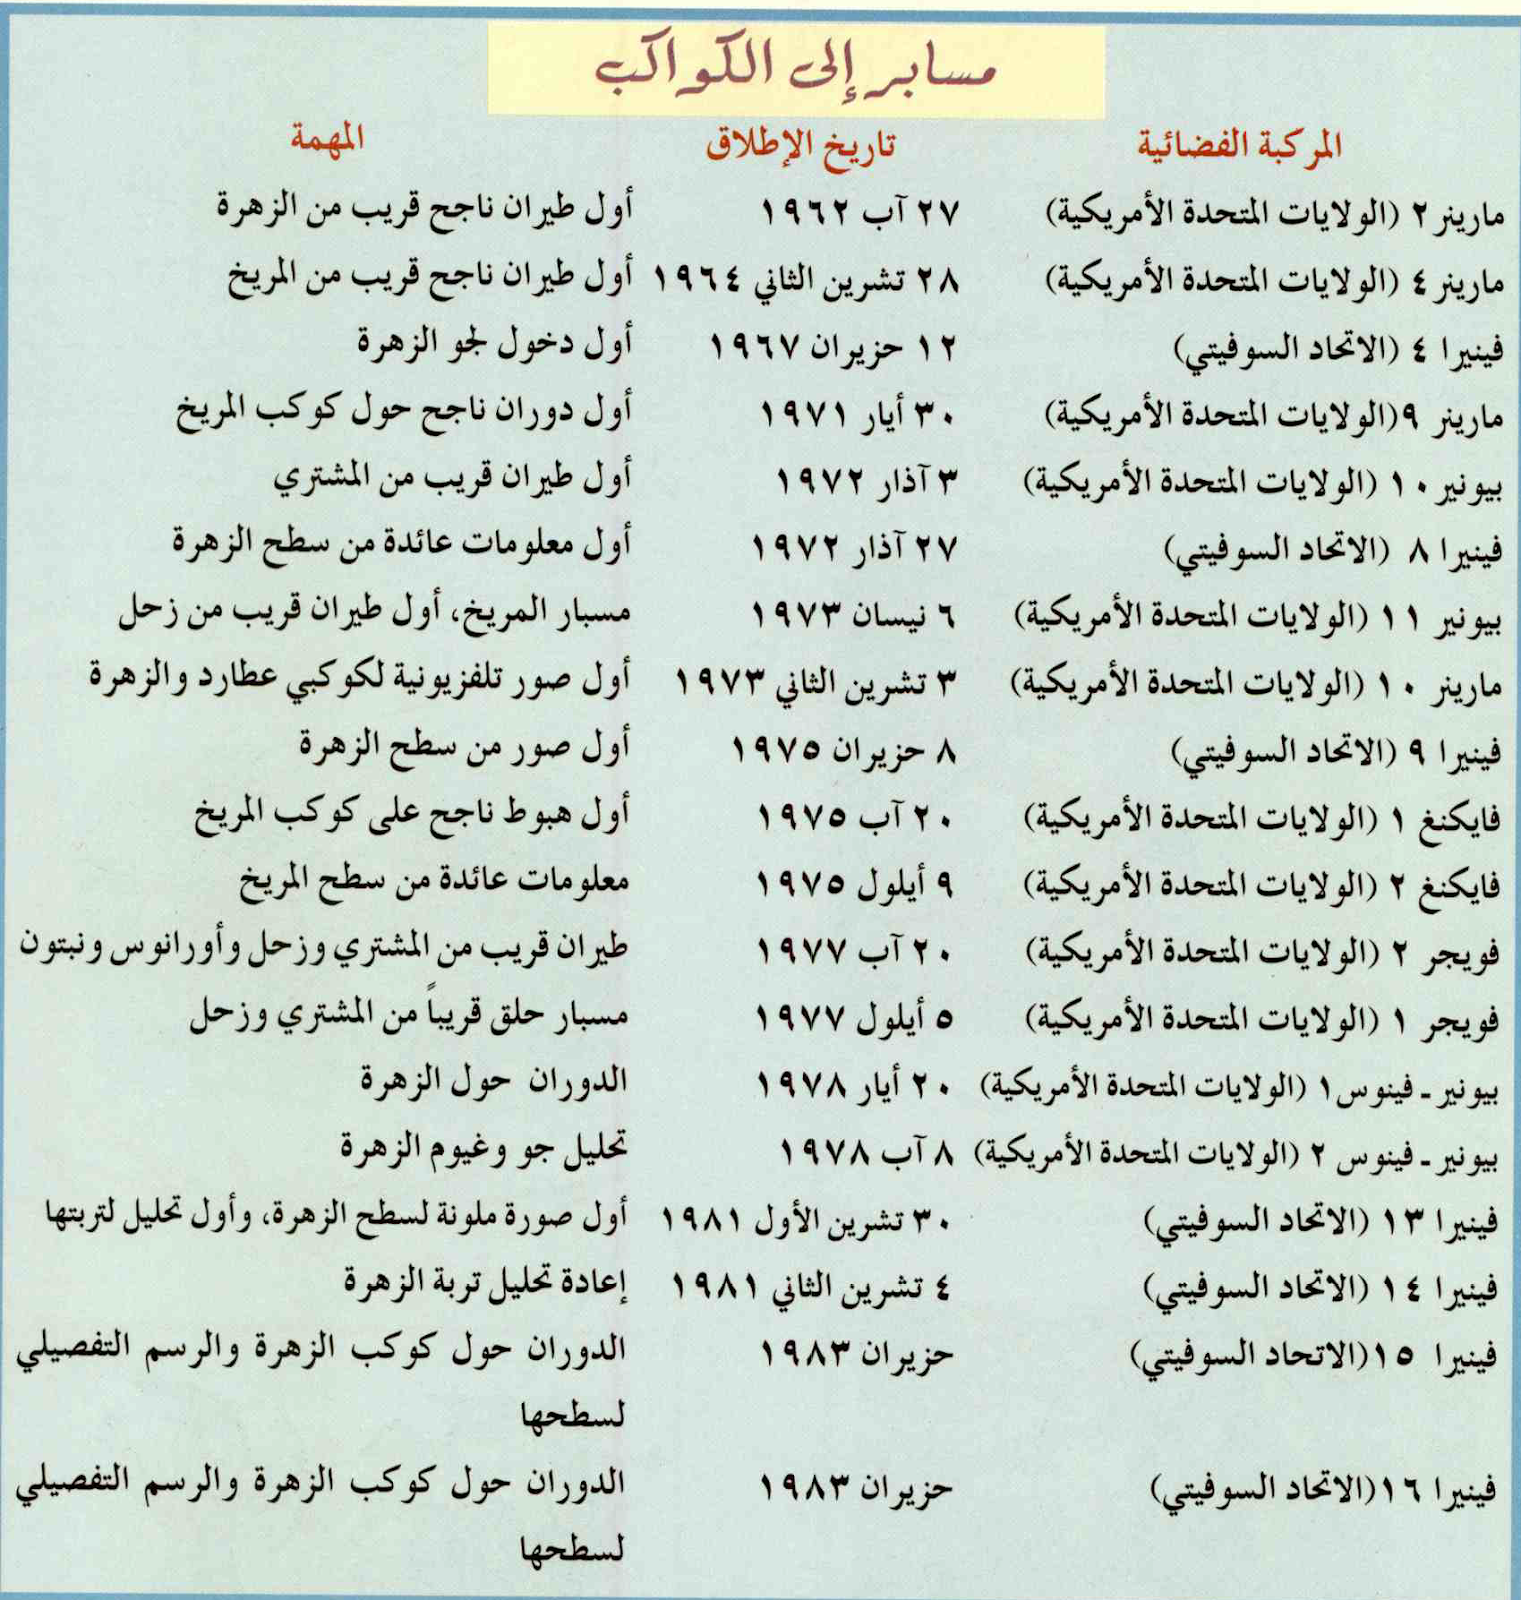 مسابر إلى الكواكب
المركبة الفضائية تاريخ الإطلاق المهمة
مارينر ٢ (الولايات المتحدة الأمريكية) ٢٧ آب ١٩٦٢ أول طيران ناجح قريب من الزهرة
مارينر ٤ (الولايات المتحدة الأمريكية) ٢٨ تشرين الثاني ١٩٦٤ أول طيران ناجح قريب من المريخ
فينيرا ٤ (الاتحاد السوفيتي) ١٢ حزيران ١٩٦٧ أول دخول لجو الزهرة
مارينر ٩(الولايات المتحدة الأمريكية) ٣٠ أيار ١٩٧١ أول دوران ناجح حول كوكب المريخ
بيونير ١٠ (الولايات المتحدة الأمريكية) ٣ آذار ١٩٧٢ أول طيران قريب من المشتري
فينيرا ٨ (الاتحاد السوفيتي) ٢٧ آذار ١٩٧٢ أول معلومات عائدة من سطح الزهرة
بيونير ١١ (الولايات المتحدة الأمريكية) ٦ نيسان ١٩٧٣ مسبار المريخ، أول طيران قريب من زحل
مارينر ١٠ (الولايات المتحدة الأمريكية) ٣ تشرين الثاني ١٩٧٣ أول صور تلفزيونية لكوكبي عطارد والزهرة
فينيرا ٩ (الاتحاد السوفيتي) ٨ حزيران ١٩٧٥ أول صور من سطح الزهرة
فايكنغ ١ (الولايات المتحدة الأمريكية) ٢٠ آب ١٩٧٥ أول هبوط ناجح على كوكب المريخ
فايكنغ ٢ (الولايات المتحدة الأمريكية) ٩ أيلول ١٩٧٥ معلومات عائدة من سطح المريخ
فويجر ٢ (الولايات المتحدة الأمريكية) ٢٠ آب ١٩٧٧ طيران قريب من المشتري وزحل وأورانوس ونبتون
فويجر ١ (الولايات المتحدة الأمريكية) ٥ أيلول ١٩٧٧ مسبار حلق قريباً من المشتري وزحل
بيونير ـ فينوس١ (الولايات المتحدة الأمريكية) ٢٠ أيار ١٩٧٨ الدوران حول الزهرة
بيونير ـ فينوس ٢ (الولايات المتحدة الأمريكية) ٨ آب ١٩٧٨ تحليل جو وغيوم الزهرة
فينيرا ١٣ (الاتحاد السوفيتي) ٣٠ تشرين الأول ١٩٨١ أول صورة ملونة لسطح الزهرة، وأول تحليل لتربتها
فينيرا ١٤ (الاتحاد السوفيتي) ٤ تشرين الثاني ١٩٨١ إعادة تحليل تربة الزهرة
فينيرا ١٥(الاتحاد السوفيتي) حزيران ١٩٨٣ الدوران حول كوكب الزهرة والرسم التفصيلي
لسطحها
فينيرا ١٦(الاتحاد السوفيتي) حزيران ١٩٨٣ الدوران حول كوكب الزهرة والرسم التفصيلي
لسطحها